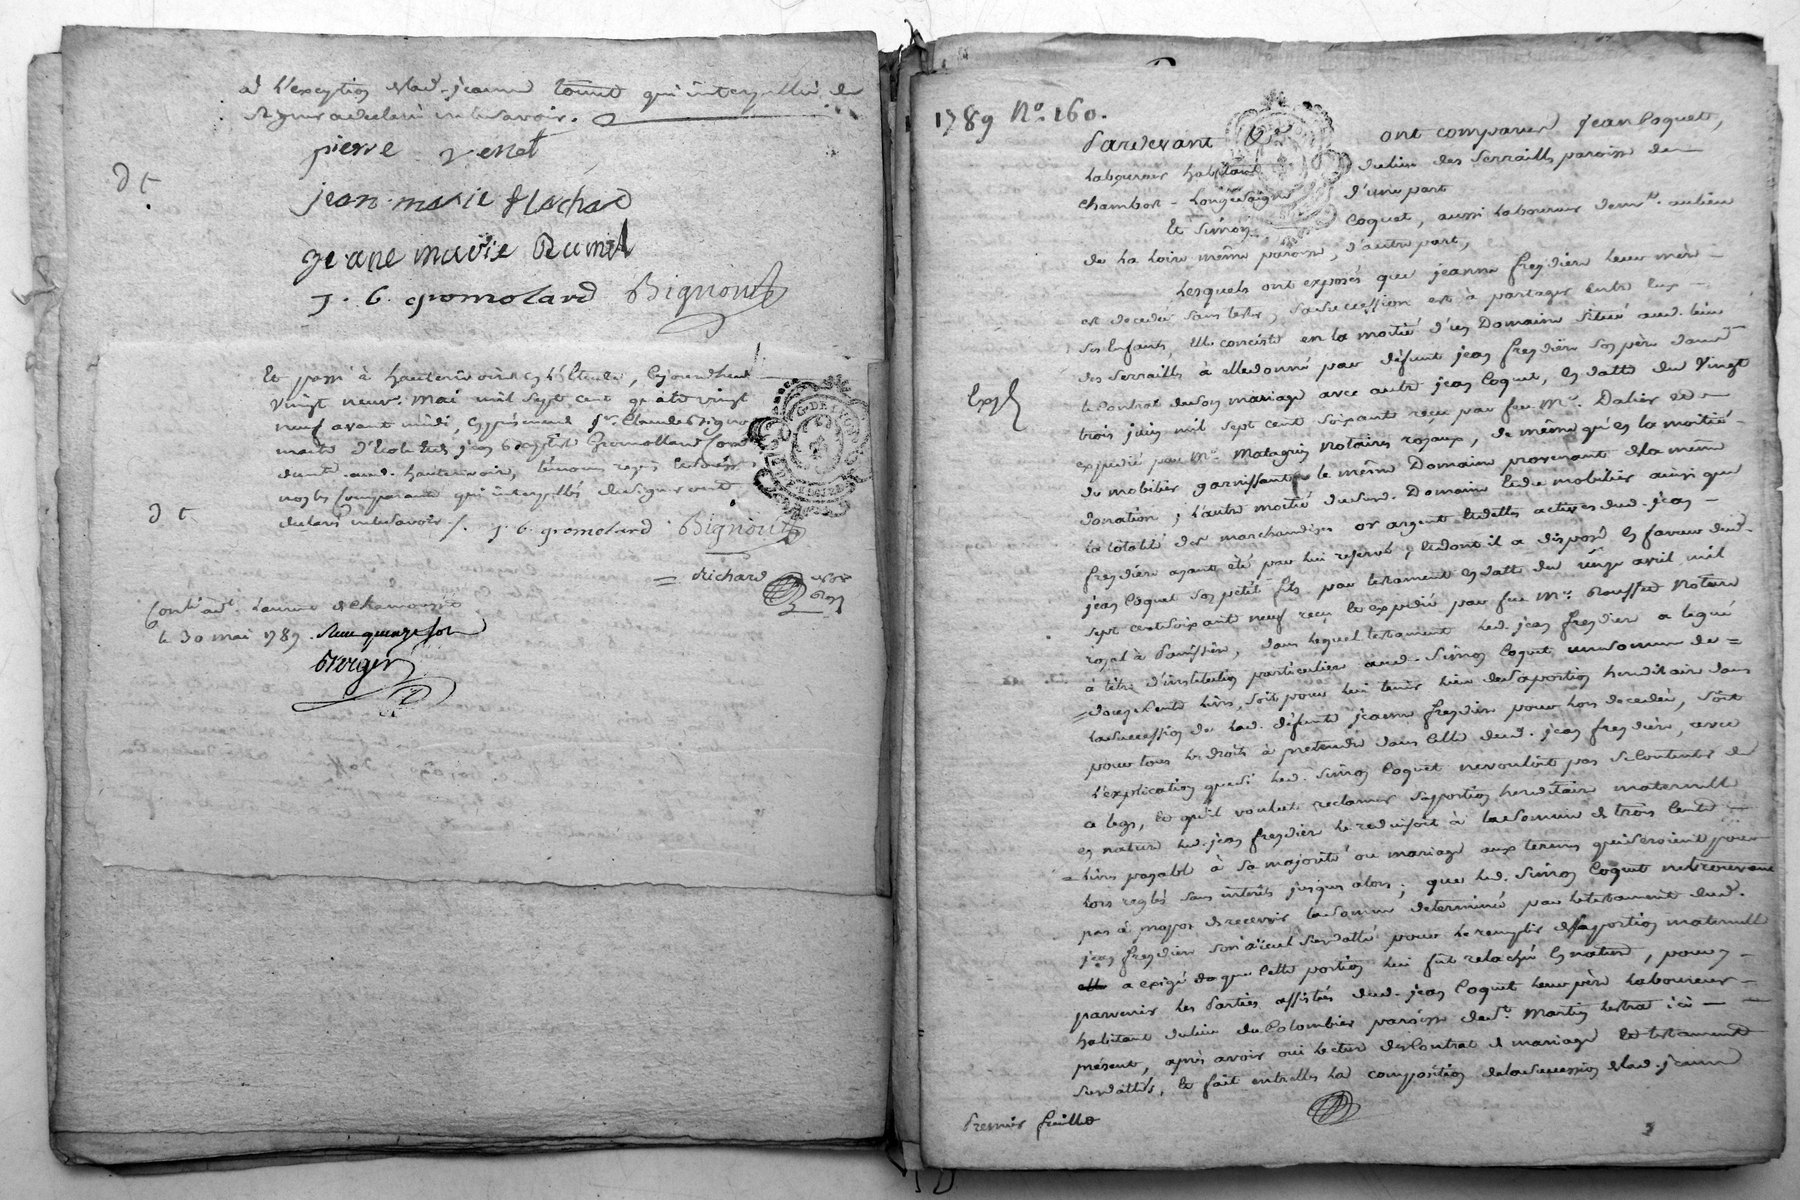 à l'exception de lad. jeanne tonut qui interpellée de
signer a declaré ne le savoir.
pierre venet
jean marie flachad
jeane marie Rumel
J. B. gromolard Bignon
Et passé à hauterivoire en l'Etude, cejourdhui
vingt neuf mai mil sept cent quatre vingt
neuf avant midi, en présence sr. Claude Bignon
maitre d'école et de jean Baptiste Gromollard
aud. hauterivoire, témoins requis
comparant qui interpellés de signer ont
declaré ne le savoir /. J. B. gromolard Bignon
Richard
Cont. a
le 30 mai 1789.
Berger
1789 No. 160.
Pardevant ont comparus jean Coquet,
laboureur habitant du lieu des Serraills paroisse de
chambost-Longessaigne d'une part
Et Simon Coquet, aussi laboureur demt. au lieu
de la Loire même paroisse, d'autre part,
Lesquels ont exposés que jeanne freydière leur mère
est decedée sans tester, sa succession est à partager entre eux
ses enfants, elle consiste en la moitié d'un Domaine situé aud. lieu
des Serraills à elle donné par défunt jean freydière son père dans
le Contrat de son mariage avec autre jean Coquet, en datte du vingt
trois juin mil sept cent soixante reçu par feu Me. Dalier et
expedié par Me. Matagrin Notaires royaux, de même qu'en la moitié
du mobilier garnissant le même Domaine provenant de la même
donation ; l'autre moitié dudit Domaine et de mobilier ainsi que
la totalité des marchandises or argent et dettes actives dud. jean
freydière ayant été par lui reservé, et dont il a disposé en faveur dud.
jean Coquet son petit fils par testament en datte du onze avril mil
sept cent soixante neuf reçu et expedié par feu Me. Rousset Notaire
royal à Panissière, dans lequel testament led. jean freydière a legué
à titre d'institution particulière aud. Simon Coquet une somme de =
= douze cents livres, soit pour lui tenir lieu de sa portion hereditaire dans
la succession de lad. défunte jeanne freydière pour lors decedée, soit
pour tous les droits à pretendre dans celle dud. jean freydière, avec
l'explication que si led. Simon Coquet ne vouloit pas se contenter de
ce legs, et qu'il voulut reclamer sa portion hereditaire maternelle
en nature led. jean freydière le reduisoit à la somme de trois cents
= livres payable à sa majorité ou mariage aux termes qui seroient pour
lors reglés sans intérêts jusques alors ; que led. Simon Coquet ne trouvant
pas à propos de recevoir la somme determinée par le testament dud.
jean freydière son aïeul susdatté pour le remplir de sa portion maternelle
a exigé que cette portion lui fût relachée en nature, pour y
parvenir les Parties assistées dud. jean Coquet leur père laboureur
habitant du lieu du Colombier paroisse de St. Martin lestrat ici
présent, après avoir oui lecture des Contrat de mariage et testament
susdattés, et fait entr'elles la composition de la succession de lad. jeanne
Premier feuillet